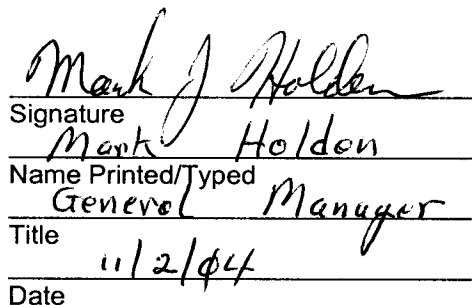 Mark J Holden
Signature
Mark Holden
Name Printed/Typed
General Manager
Title
11/2/04
Date